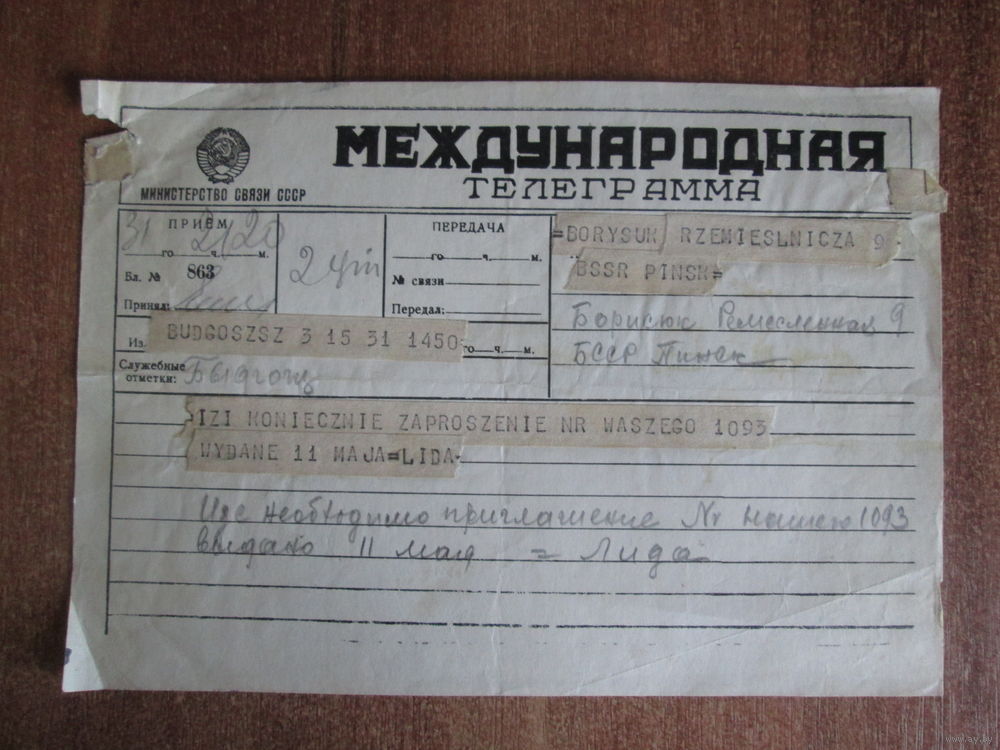 МЕЖДУНАРОДНАЯ
ТЕЛЕГРАММА
МИНИСТЕРСТВО СВЯЗИ СССР
ПРИЁМ
31 21 20
го ч. м.
Бл. № 863
Принял:
ПЕРЕДАЧА
го ч. м.
№ связи
Передал:
=BORYSUK RZEMIESLNICZA 9
BSSR PINSK=
Борисюк Ремесленная 9
БССР Пинск
Из BUDGOSZSZ 3 15 31 1450=
го ч. м.
Служебные
отметки: Быдгощ
IZI KONIECZNIE ZAPROSZENIE NR WASZEGO 1093
WYDANE 11 MAJA=LIDA
необходимо приглашение Nr нашего 1093
выдано 11 мая = Лида
www.ay.by